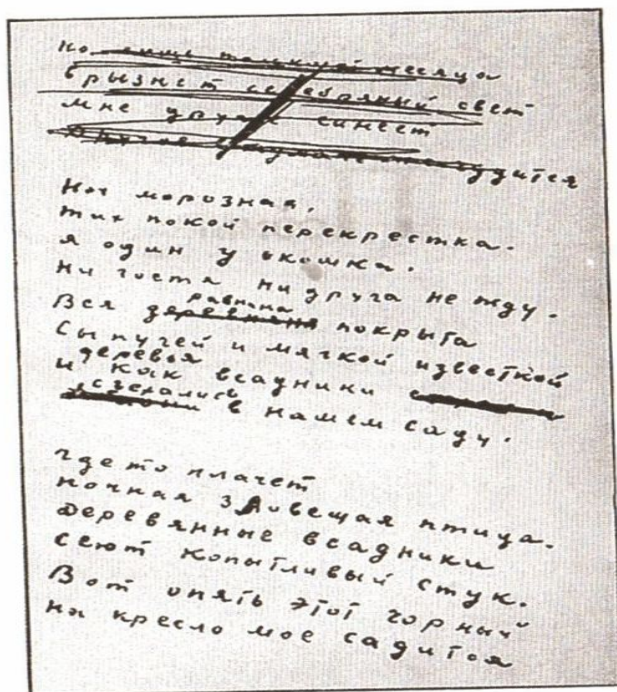 Но лишь месяца
брызнет серебряный свет
мне синеет
чудится
Ноч морозная,
тих покой перекрестка.
я один у окошка.
ни гостя ни друга не жду.
равнина
Вся покрыта
Сыпучей и мягкой известкой
деревья
и как всадники
съехались
в нашем саду.
где то плачет
ночная зловещая птица.
деревянные всадники
сеют копытливый стук.
Вот опять этот чорный
на кресло мое садится